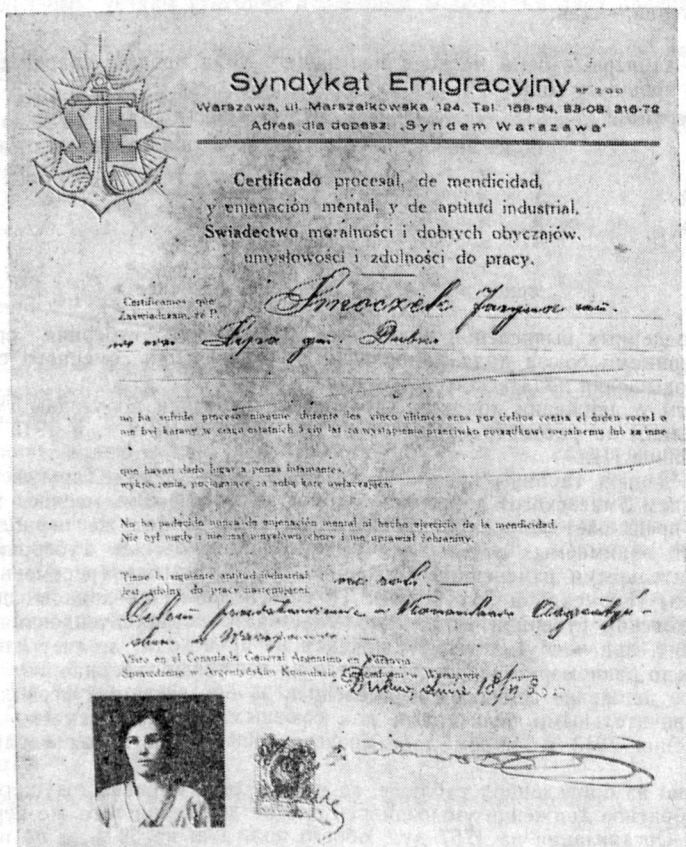 SE
Syndykat Emigracyjny
Warszawa, ul. Marszałkowska 124. Tel. 168-84, 83-08, 316-72
Adres dla depesz: „Syndem Warszawa"
Certificado procesal, de mendicidad,
y enienación mental, y de aptitud industrial.
Świadectwo moralności i dobrych obyczajów,
umysłowości i zdolności do pracy.
Certificamos que
Zaświadczam, że P.
Smoczek
no ha sufrido proceso ninguno durante los cinco últimos anos por delitos contra el órden sociel o
nie był karany w ciągu ostatnich 5-ciu lat za wystąpienia przeciwko porządkowi socjalnemu lub za inne
que hayan dado lugar a penas infamantes.
wykroczenia, pociągające za sobą karę uwłaczającą.
No ha padecido nunca de enjenación mental ni hecho ejercicio de la mendicidad.
Nie był nigdy i nie jest umysłowo chory i nie uprawiał żebraniny.
Tiene la siguiente aptitud industrial
Jest zdolny do pracy następującej
Celem przedstawienia w Konsulacie Argentyń-
skim w Warszawie
Visto en el Consulado General Argentino en Varsovia
Sprawdzono w Argentyńskim Konsulacie Generalnym w Warszawie
dnia